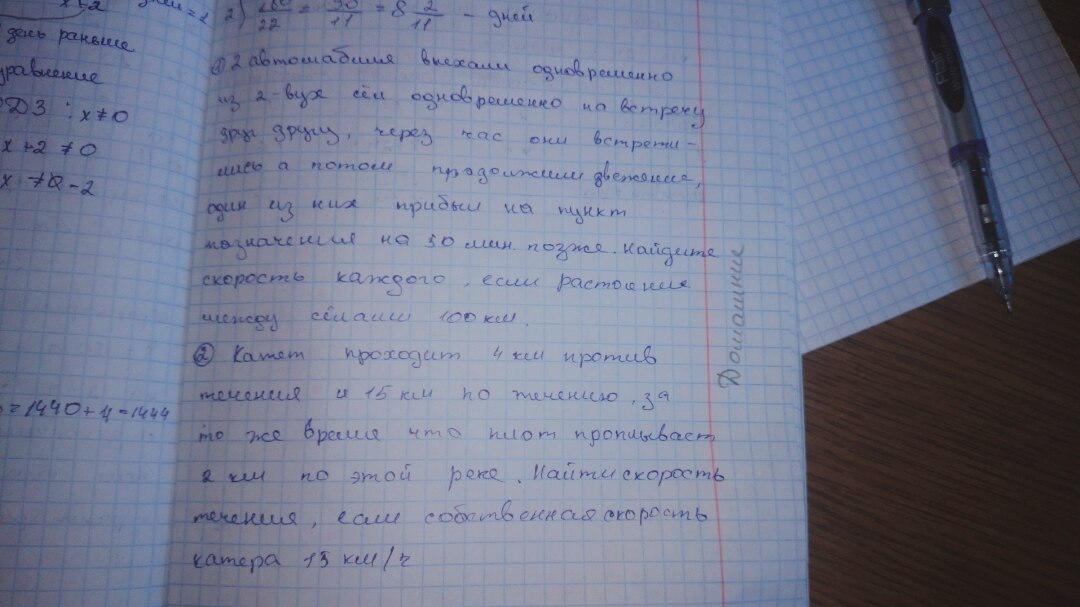 день раньше
уравнение
ОДЗ : x≠0
x + 2 ≠ 0
x ≠ -2
= 1440 + 4 = 1444
2) 180/22 = 90/11 = 8 2/11 - дней
① 2 автомабиля выехали одновременно
из 2-вух сёл одновременно на встречу
друг другу, через час они встрети-
лись а потом продолжили движение,
один из них прибыл на пункт
назначения на 50 мин. позже. Найдите
скорость каждого, если растояние
между сёлами 100 км.
② Катет проходит 4 км против
течения и 15 км по течению, за
то же время что плот проплывает
2 км по этой реке. Найти скорость
течения, если собственная скорость
катера 13 км/ч
Домашние